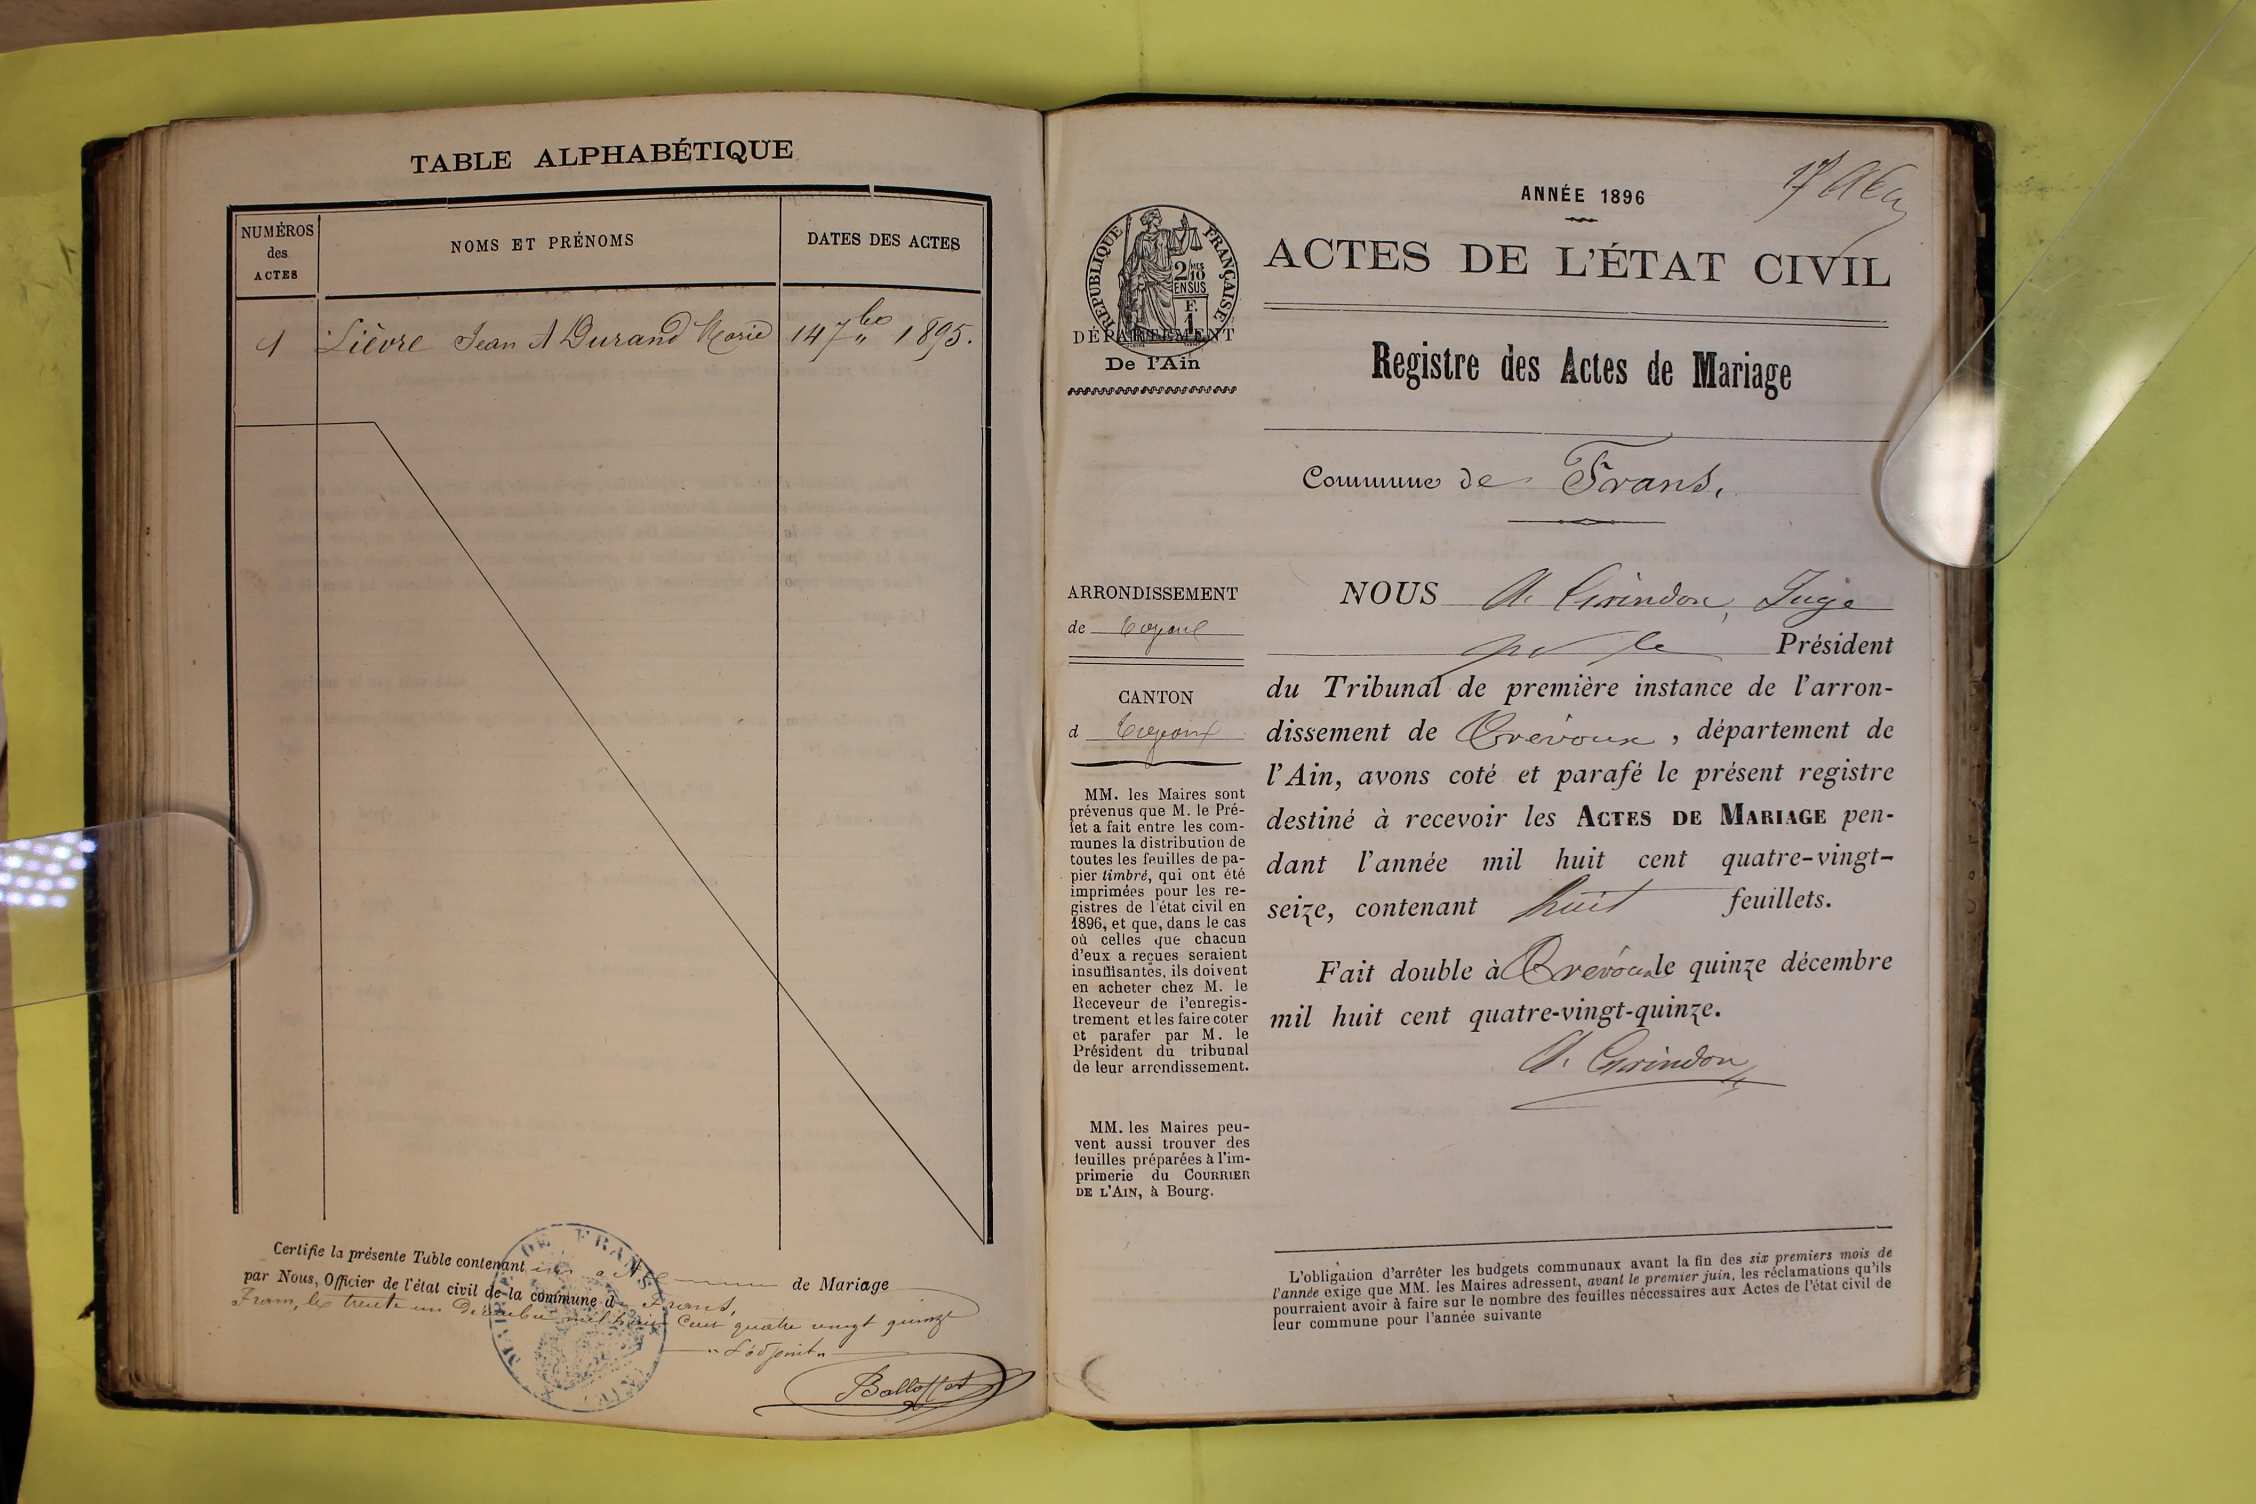 TABLE ALPHABÉTIQUE
NUMÉROS
des
ACTES
NOMS ET PRÉNOMS
DATES DES ACTES
1 Lièvre Jean & Durand Marie 14 7bre 1895.
Certifie la présente Table contenant un acte de Mariage
par Nous, Officier de l'état civil de la commune de Frans,
Frans, le trente un Décembre mil huit Cent quatre vingt quinze
L'adjoint
Balloffet
MAIRIE DE FRANS
(AIN)
ANNÉE 1896
ACTES DE L'ÉTAT CIVIL
RÉPUBLIQUE FRANÇAISE
2/10 MES
EN SUS
F.
1
DÉPARTEMENT
De l'Ain
Registre des Actes de Mariage
Commune de Frans.
ARRONDISSEMENT
de
CANTON
d
MM. les Maires sont
prévenus que M. le Pré-
fet a fait entre les com-
munes la distribution de
toutes les feuilles de pa-
pier timbré, qui ont été
imprimées pour les re-
gistres de l'état civil en
1896, et que, dans le cas
où celles que chacun
d'eux a reçues seraient
insuffisantes, ils doivent
en acheter chez M. le
Receveur de l'enregis-
trement et les faire coter
et parafer par M. le
Président du tribunal
de leur arrondissement.
MM. les Maires peu-
vent aussi trouver des
feuilles préparées à l'im-
primerie du COURRIER
DE L'AIN, à Bourg.
NOUS A. Girindon, Juge
pr le Président
du Tribunal de première instance de l'arron-
dissement de Trévoux, département de
l'Ain, avons coté et parafé le présent registre
destiné à recevoir les ACTES DE MARIAGE pen-
dant l'année mil huit cent quatre-vingt-
seize, contenant huit feuillets.
Fait double à Trévoux le quinze décembre
mil huit cent quatre-vingt-quinze.
A. Girindon
L'obligation d'arrêter les budgets communaux avant la fin des six premiers mois de
l'année exige que MM. les Maires adressent, avant le premier juin, les réclamations qu'ils
pourraient avoir à faire sur le nombre des feuilles nécessaires aux Actes de l'état civil de
leur commune pour l'année suivante